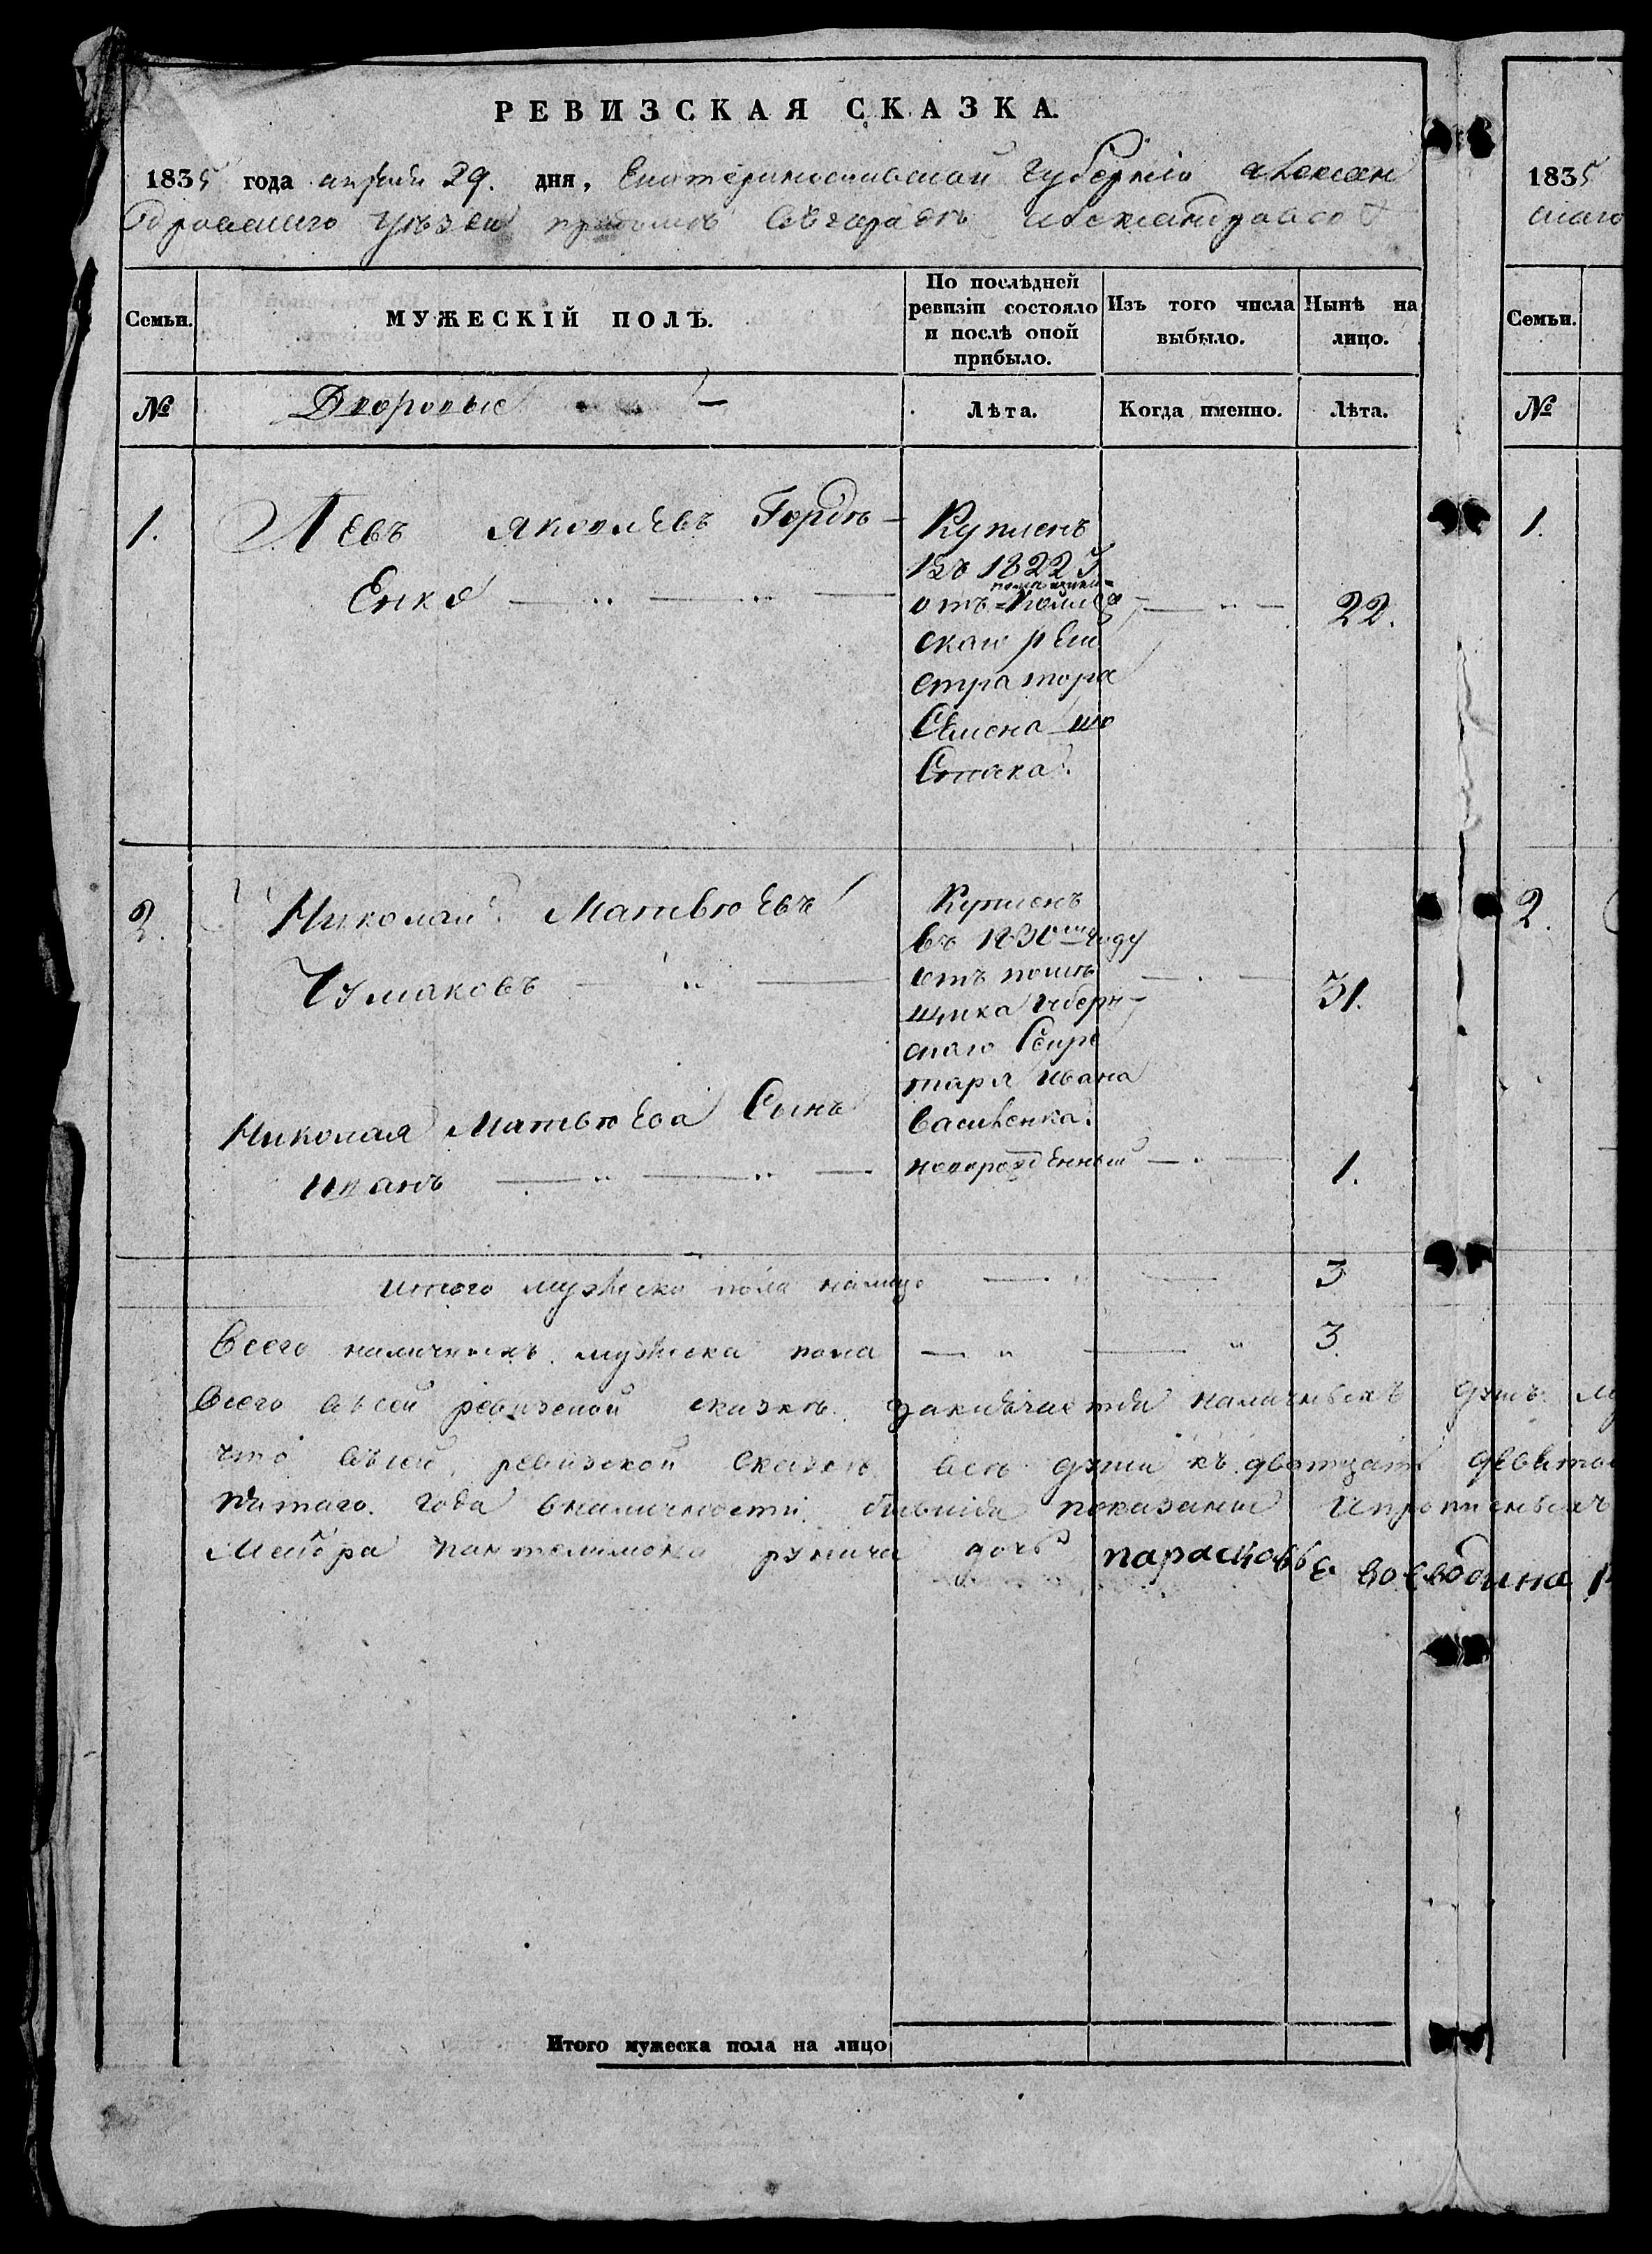 РЕВИЗСКАЯ СКАЗКА.
1835 года апреля 29. дня, Екатеринославской Губерніи Алексан
дровскаго Уѣзда въ городѣ Александровск
Семьи.
МУЖЕСКІЙ ПОЛЪ.
По послѣдней ревизіи состояло и послѣ оной прибыло.
Изъ того числа выбыло.
Нынѣ на лицо.
№
Дворовые
Лѣта.
Когда именно.
Лѣта.
1.
Левъ Яковлевъ Гордѣ-
Енко
Купленъ
въ 1822 г
отъ
скаго реги
стратора
Семена
22.
2.
Николай Матвѣевъ
Чумаковъ
Купленъ
въ 1830 году
отъ помѣ
щика Губерн-
скаго Секре
таря Ивана
Василенка.
31.
Николая Матвѣева Сынъ
Иванъ
новорожденный
1.
Итого мужеска пола налицо
3
Всего наличныхъ мужеска пола
3
Всего въсей ревизской сказкѣ заключается наличныхъ душъ
что въсей ревизской сказкѣ всѣ души къ дватцать девятое
пятаго года вналичности бывшія показаны
Маіора Пантелимона Рунича дочь Парасковье Воеводина
Итого мужеска пола на лицо
1835
скаго
Семьи.
№
1.
2.